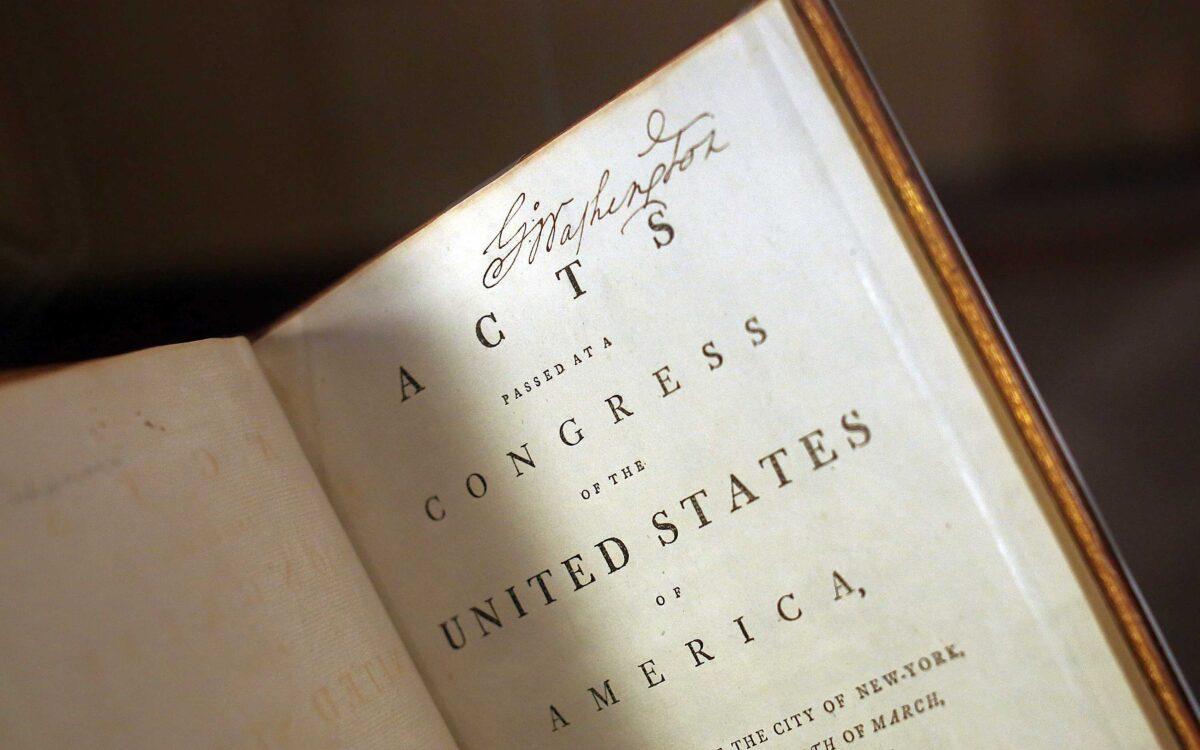 G. Washington
ACTS
PASSED AT A
CONGRESS
OF THE
UNITED STATES
OF
AMERICA,
THE CITY OF NEW-YORK,
TH OF MARCH,